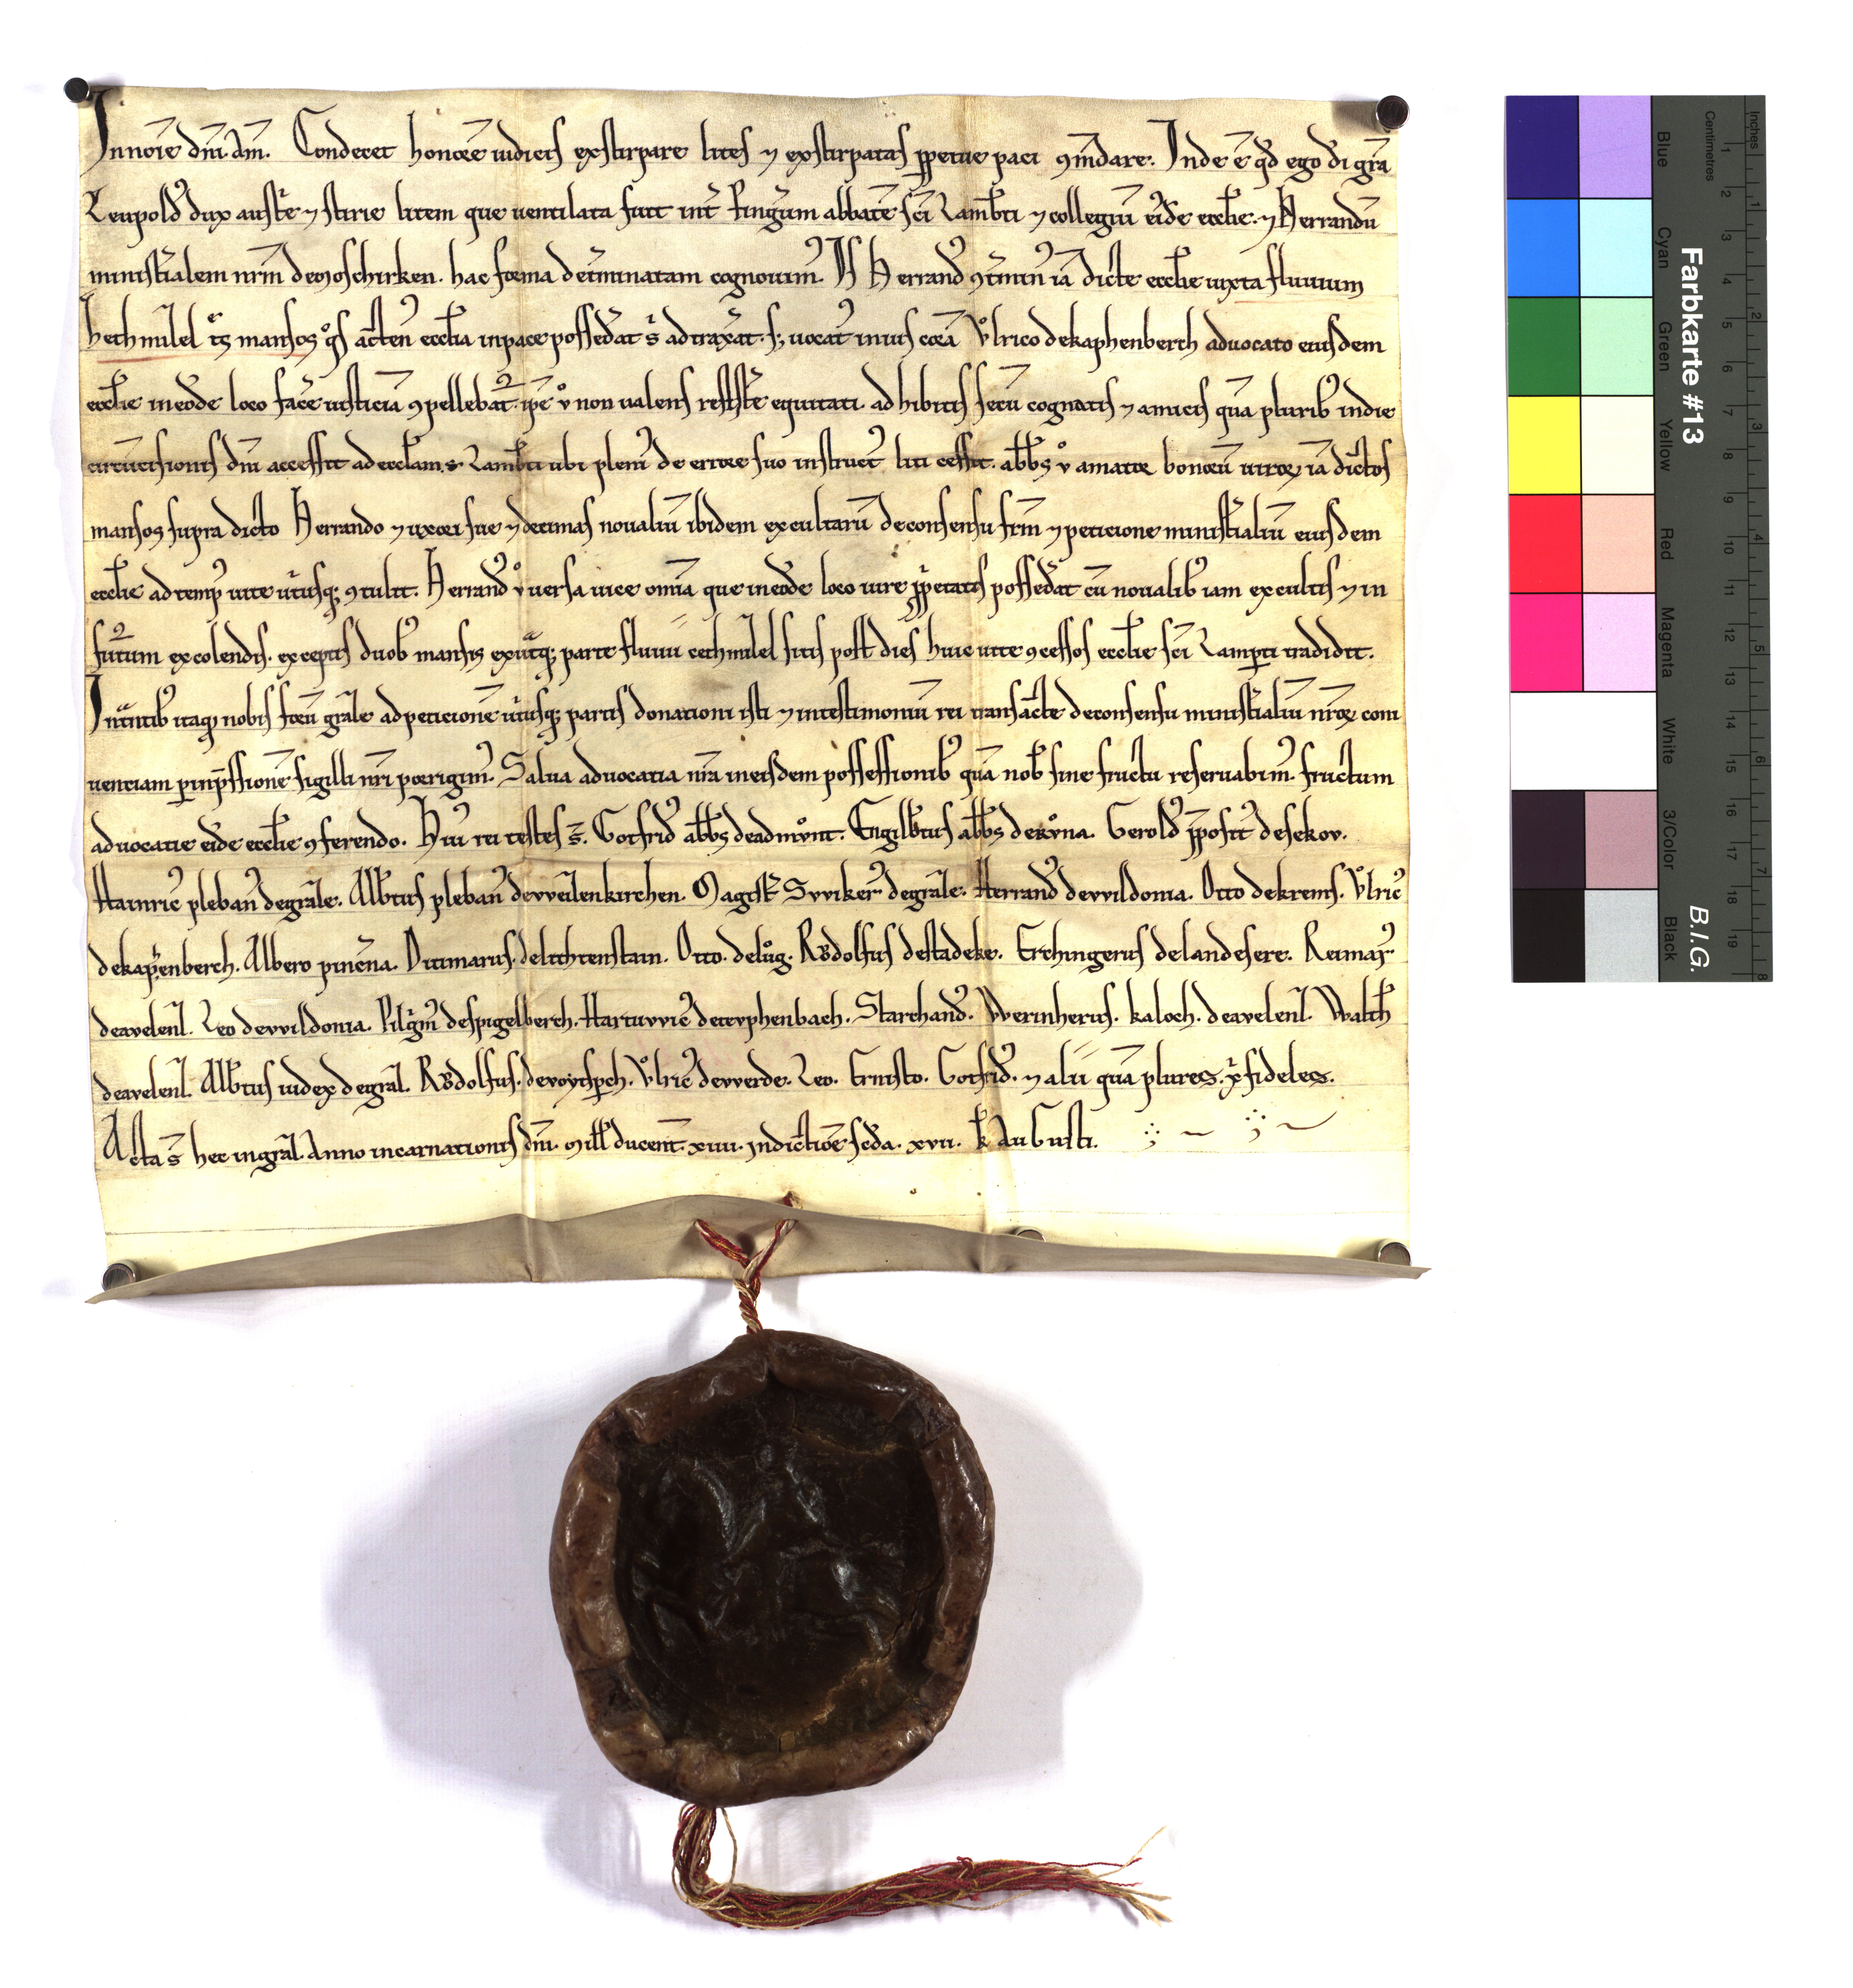 Innoīe dn̄i. Am̄. Condecet honorē iudicis exstirpare lites ⁊ exstirpatas ꝑpetue paci ꝯm̄dare. Inde ē qd̄ ego di gr̄a
Leupold᾽ dux austr̄e ⁊ stirie litem que uentilata fuit int̄ abbatē sc̄i Lamb̄ti ⁊ collegiū eid̄e eccl̄ie. ⁊ Herrandū
minist̄ialem nr̄m de moschirken. hac forma det̄minatam cognouim᾽. Is Herrand᾽ iā dicte eccl̄ie iuxta fluuium
mansos q°s acten᾽ eccl̄ia inpace possed̄at uocat᾽ corā Vͦlrico dekaphenberch aduocato eiusdem
eccl̄ie in eod̄e loco fac̄e iusticiā ꝯpellebat᾽. ip̄e v° non ualens resist̄e equitati. adhibitis secū cognatis ⁊ amicis quā plurib᾽ indie
circūcisionis dn̄i accessit ad eccl̄iam. s. Lamb̄ti ubi pleni᾽ de errore suo instruct᾽ liti cessit. abb̄s v° bonorū uiroꝝ iā dictos
mansos supra dicto Herrando ⁊ uxori sue ⁊ decimas noualiū ibidem excultarū deconsensu fr̄m ⁊ peticione minist̄ialiū eiusdem
eccl̄ie ad temp᾽ uite ut̄iusq; ꝯtulit. Herrand᾽ v° uersa uice om̄ia que in eod̄e loco iure ꝓp̄etatis possed̄at cū noualib᾽ iam excultis ⁊ in
fut᾽um excolendis. exceptis duob᾽ mansis ex ut̄aq; parte fluuii cechm̄lel sitis post dies huic uite ꝯcessos eccl̄ie sc̄i Lamperti tradidit.
nobis forū gr̄ale ad peticionē ut̄iusq; partis donationi isti ⁊ intestimoniū rei transacte deconsensu minist̄ialiū nr̄oꝝ con
uenciam ꝑ inp̄ssionē sigilli nr̄i porrigim᾽. Salua aduocatia nr̄a in eisdem possessionib᾽ quā nob᾽ sine fructu reseruabim᾽. fructum
aduocatie eid̄e eccl̄ie ꝯferendo. Hui᾽ rei testes s̄. Gotfrid᾽ abb̄s deadmvͦnt. Engilb̄tus abb̄s dervͦna. Gerold᾽ p̄posit᾽ desekov.
Hainric᾽ pleban᾽ degr̄ale. Alb̄tus pleban᾽ deweilenkirchen. Magist̄ Swiker᾽ degr̄ale. Herrand᾽ dewildonia. Otto dekrems. Vͦlric᾽
dekap̄enberch. Albero pinc̄na. Ditmarus. delichtenstain. Otto. delūg. Rvͦdolfus destadeke. Erchingerus delandesere. Reimar᾽
deauelen̄l. Leo dewildonia. Pilgīm᾽ despigelberch. Hartwic᾽ Starchand᾽. Werinherus. kaloch. deauelen̄l. Walch̄
deauelen̄l. Alb̄tus iudex degr̄al. Rvͦdolfus. Vͦlric᾽ dewerde. Leo. Ernisto. Gotfrid᾽. ⁊ alii quā plures. xp̄i fideles.
Acta s̄ hec ingr̄al. Anno incarnationis dn̄i. mill̄. ducent̄. xiiii. Indictiōe sc̄da. xvii. k̄ Augusti.
Farbkarte #13
B.I.G.
Blue
Cyan
Green
Yellow
Red
Magenta
White
3/Color
Black
Centimetres
1 2 3 4 5 6 7 8 9 10 11 12 13 14 15 16 17 18 19
Inches
1 2 3 4 5 6 7 8